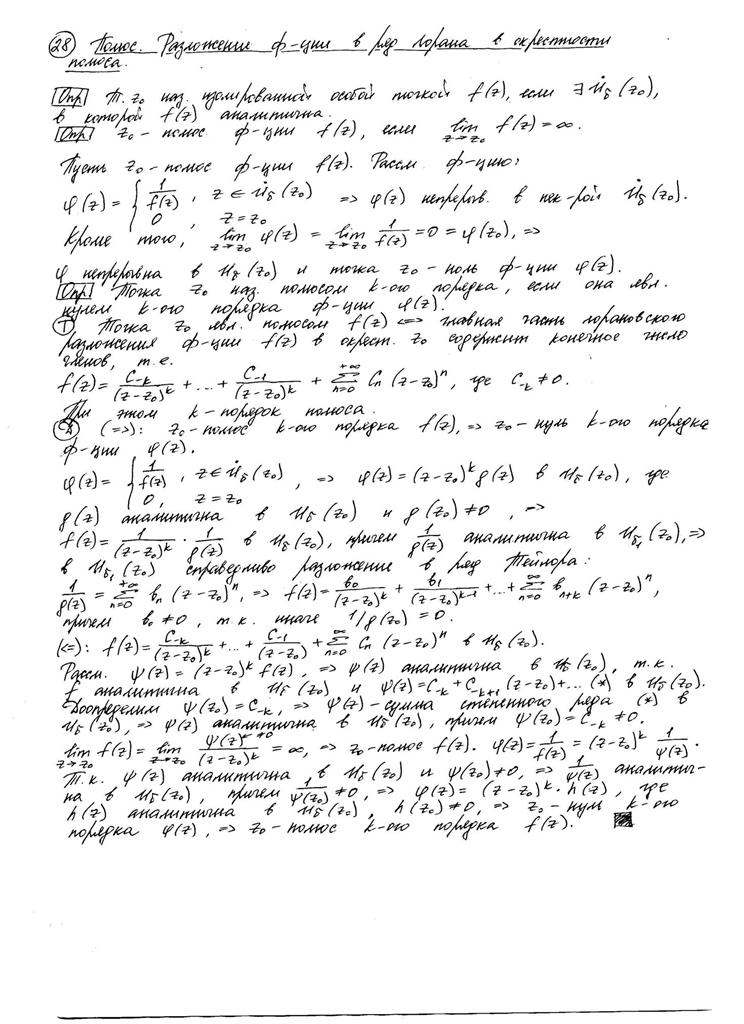 28 Полюс. Разложение ф-ции в ряд Лорана в окрестности
полюса.
Опр Т. z₀ наз. изолированной особой точкой f(z), если ∃ U̇_δ(z₀),
в которой f(z) аналитична.
Опр z₀ - полюс ф-ции f(z), если lim_{z→z₀} f(z) = ∞.
Пусть z₀ - полюс ф-ции f(z). Рассм. ф-цию:
φ(z) = { 1/f(z), z ∈ U̇_δ(z₀) ; 0, z = z₀ => φ(z) непрерыв. в нек-рой U̇_δ(z₀).
Кроме того, lim_{z→z₀} φ(z) = lim_{z→z₀} 1/f(z) = 0 = φ(z₀), =>
φ непрерывна в U_δ(z₀) и точка z₀ - ноль ф-ции φ(z).
Опр Точка z₀ наз. полюсом k-ого порядка, если она явл.
нулем k-ого порядка ф-ции φ(z).
Т Точка z₀ явл. полюсом f(z) <=> главная часть лорановского
разложения ф-ции f(z) в окрест. z₀ содержит конечное число
членов, т.е.
f(z) = C_{-k}/(z-z₀)^k + ... + C_{-1}/(z-z₀)^k + Σ_{n=0}^{+∞} C_n (z-z₀)^n, где C_{-k} ≠ 0.
При этом k - порядок полюса.
Д (=>): z₀ - полюс k-ого порядка f(z), => z₀ - нуль k-ого порядка
ф-ции φ(z).
φ(z) = { 1/f(z), z ∈ U̇_δ(z₀) ; 0, z = z₀ , => φ(z) = (z-z₀)^k g(z) в U_δ(z₀), где
g(z) аналитична в U_δ(z₀) и g(z₀) ≠ 0, =>
f(z) = 1/(z-z₀)^k · 1/g(z) в U_δ(z₀), причем 1/g(z) аналитична в U_{δ₁}(z₀), =>
в U_{δ₁}(z₀) справедливо разложение в ряд Тейлора:
1/g(z) = Σ_{n=0}^{+∞} b_n (z-z₀)^n, => f(z) = b₀/(z-z₀)^k + b₁/(z-z₀)^{k-1} + ... + Σ_{n=0}^{∞} b_{n+k} (z-z₀)^n,
причем b₀ ≠ 0, т.к. иначе 1/g(z₀) = 0.
(<=): f(z) = C_{-k}/(z-z₀)^k + ... + C_{-1}/(z-z₀) + Σ_{n=0}^{∞} C_n (z-z₀)^n в U_δ(z₀).
Рассм. ψ(z) = (z-z₀)^k f(z), => ψ(z) аналитична в U_δ(z₀), т.к.
f аналитична в U_δ(z₀) и ψ(z) = C_{-k} + C_{-k+1}(z-z₀) + ... (*) в U_δ(z₀).
Доопределим ψ(z₀) = C_{-k}, => ψ(z) - сумма степенного ряда (*) в
U_δ(z₀), => ψ(z) аналитична в U_δ(z₀), причем ψ(z₀) = C_{-k} ≠ 0.
lim_{z→z₀} f(z) = lim_{z→z₀} ψ(z)^{≠0}/(z-z₀)^k = ∞, => z₀ - полюс f(z). φ(z) = 1/f(z) = (z-z₀)^k 1/ψ(z).
Т.к. ψ(z) аналитична в U_δ(z₀) и ψ(z₀) ≠ 0, => 1/ψ(z) аналитич-
на в U_δ(z₀), причем 1/ψ(z₀) ≠ 0, => φ(z) = (z-z₀)^k · h(z), где
h(z) аналитична в U_δ(z₀), h(z₀) ≠ 0, => z₀ - нуль k-ого
порядка φ(z), => z₀ - полюс k-ого порядка f(z).